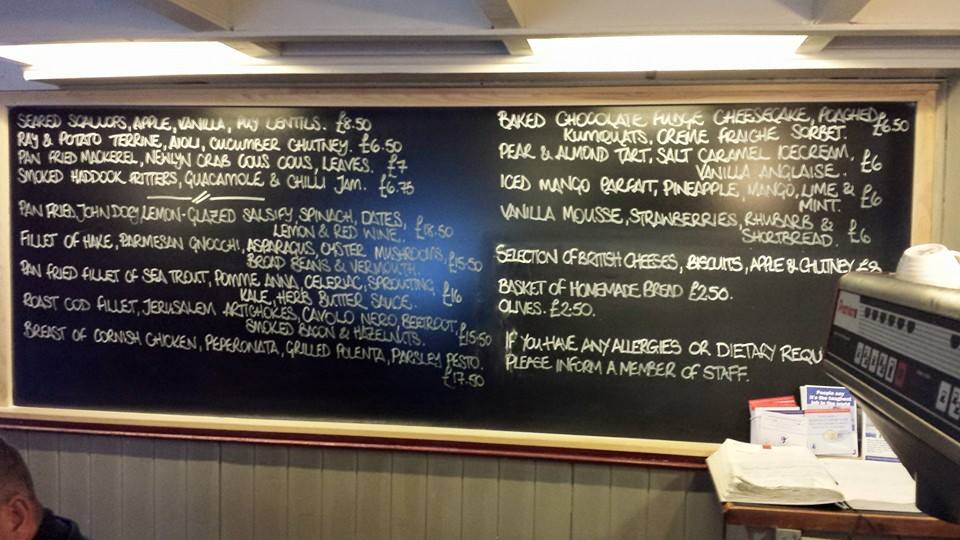 SEARED SCALLOPS, APPLE, VANILLA, PUY LENTILS. £8.50
RAY & POTATO TERRINE, AIOLI, CUCUMBER CHUTNEY. £6.50
PAN FRIED MACKEREL, NEWLYN CRAB COUS COUS, LEAVES. £7
SMOKED HADDOCK FRITTERS, GUACAMOLE & CHILLI JAM. £6.75
PAN FRIED JOHN DORY, LEMON-GLAZED SALSIFY, SPINACH, DATES,
LEMON & RED WINE. £18.50
FILLET OF HAKE, PARMESAN GNOCCHI, ASPARAGUS, OYSTER MUSHROOMS,
BROAD BEANS & VERMOUTH. £15.50
PAN FRIED FILLET OF SEA TROUT, POMME ANNA, CELERIAC, SPROUTING
KALE, HERB BUTTER SAUCE. £16
ROAST COD FILLET, JERUSALEM ARTICHOKES, CAVOLO NERO, BEETROOT,
SMOKED BACON & HAZELNUTS. £15.50
BREAST OF CORNISH CHICKEN, PEPERONATA, GRILLED POLENTA, PARSLEY PESTO.
£17.50
BAKED CHOCOLATE FUDGE CHEESECAKE, POACHED £6.50
KUMQUATS, CREME FRAICHE SORBET.
PEAR & ALMOND TART, SALT CARAMEL ICECREAM,
VANILLA ANGLAISE. £6
ICED MANGO PARFAIT, PINEAPPLE, MANGO, LIME, &
MINT. £6
VANILLA MOUSSE, STRAWBERRIES, RHUBARB &
SHORTBREAD. £6
SELECTION OF BRITISH CHEESES, BISCUITS, APPLE & CHUTNEY £8
BASKET OF HOMEMADE BREAD £2.50.
OLIVES. £2.50.
IF YOU HAVE ANY ALLERGIES OR DIETARY REQU
PLEASE INFORM A MEMBER OF STAFF.
People say
it's the toughest
job in the world